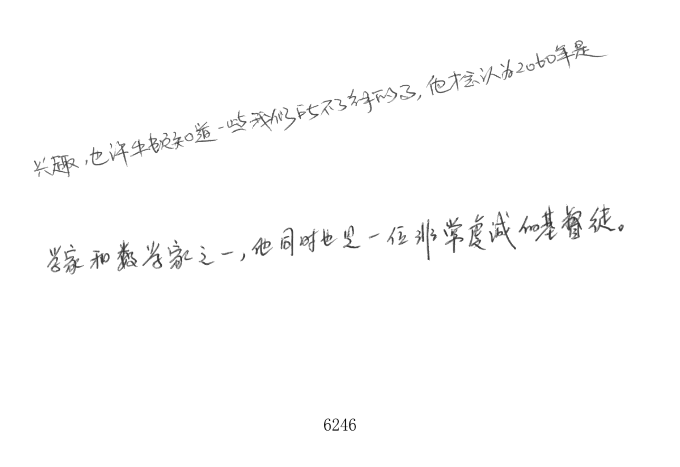 兴趣,也许牛顿知道一些我们所不了解的了,他才会认为2060年是
学家和数学家之一,他同时也是一位非常虔诚的基督徒。
6246